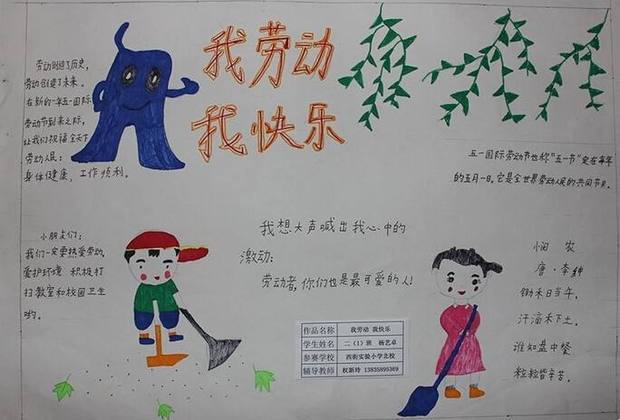 我劳动
我快乐
劳动创造了历史,
劳动创建了未来.
在新的一年五一国际
劳动节到来之际,
让我们祝福全天下
劳动人民:
身体健康,工作顺利.
五一国际劳动节也称“五一节”定在每年
的五月一日.它是全世界劳动人民的共同节日.
小朋友们:
我们一定要热爱劳动,
爱护环境 积极打
扫教室和校园卫生
哟.
我想大声喊出我心中的
激动:
劳动者,你们也是最可爱的人!
悯 农
唐·李绅
锄禾日当午,
汗滴禾下土.
谁知盘中餐
粒粒皆辛苦.
作品名称 我劳动 我快乐
学生姓名 二(1)班 杨艺卓
参赛学校 西街实验小学北校
辅导教师 权新玲 13835895389